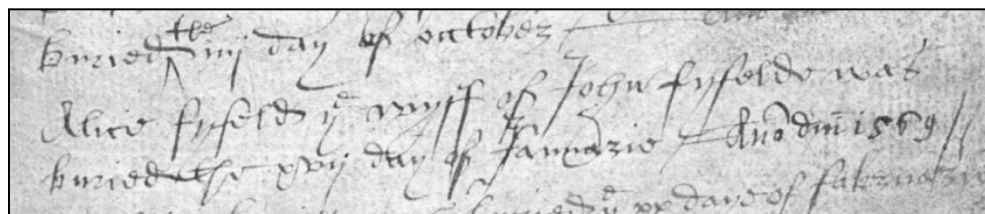 buried the iiij day of october
Alice fyfeld yͤ wyff of John fyfelde was
buried the xvij day of Januarie Ano dm̄ 1569
buried yͤ xx daye of